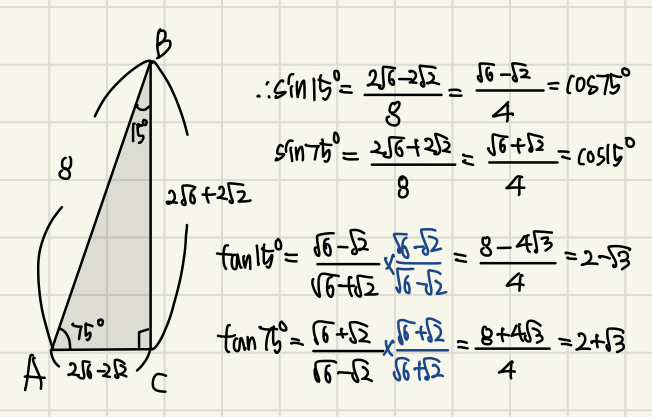 B
15°
8
2√6+2√2
75°
A
2√6-2√2
C
∴sin15°= (2√6-2√2)/8 = (√6-√2)/4 = cos75°
sin75°= (2√6+2√2)/8 = (√6+√2)/4 = cos15°
tan15°= (√6-√2)/(√6+√2) × (√6-√2)/(√6-√2) = (8-4√3)/4 = 2-√3
tan75°= (√6+√2)/(√6-√2) × (√6+√2)/(√6+√2) = (8+4√3)/4 = 2+√3